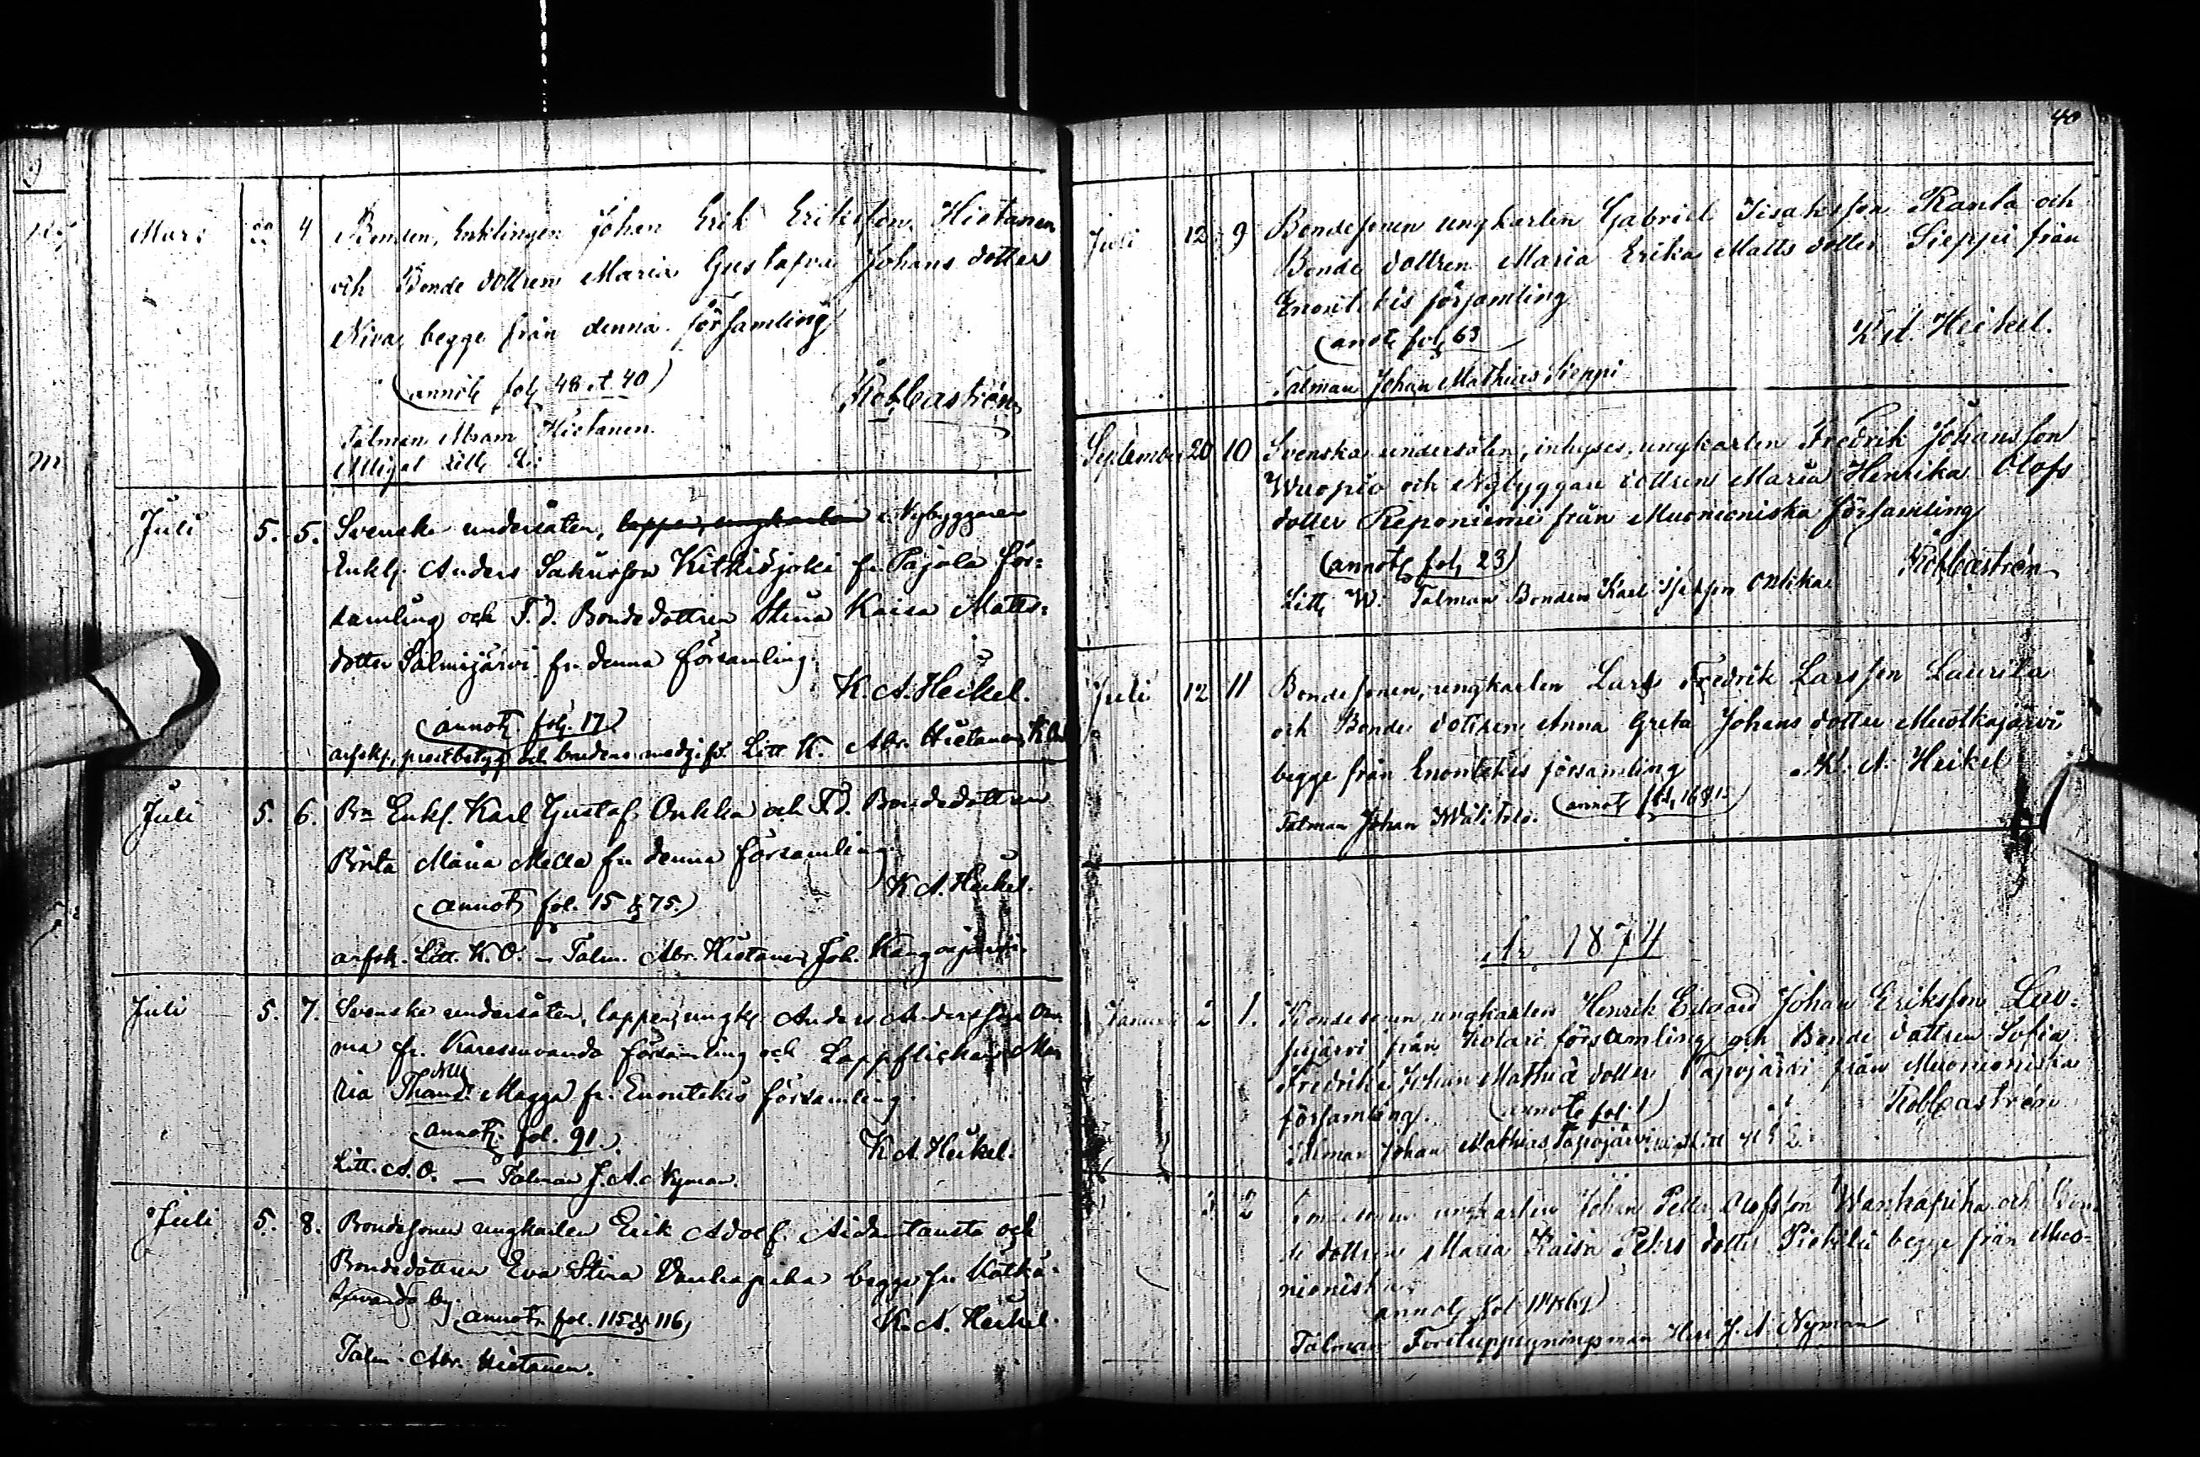 Mars 4 Bonden, Enklingen Johan Erik Eriksson Hietanen
och Bonde dottren Maria Gustafva Johans dotter
Niva, begge från denna församling
(annot. fol. 48 et 40)
Rob. Castrén
Talman Abram Hietanen.
Juli 5. 5. Svenske undersåten, lappen, ungkarlen Nybyggaren
Enkl. Anders Sakrisson Kitkisjoki fr. Pajala för=
samling och F. d. Bondedottren Stina Kaisa Matts=
dotter Salmijärvi fr. denna församling.
K. A. Heikel.
(annot. fol. 17)
arfskf. prestbetyg och brudens medgift. Litt. K. Abr. Hietanen
Juli 5. 6. Bn Enkl. Karl Gustaf Onkka och F. d. Bondedottren
Brita Maria Mella fr. denna församling
K. A. Heikel.
(annot. fol. 15 & 75.)
arfsk. Litt. K. O. — Talm. Abr. Hietanen, Joh. Kangosjärvi.
Juli 5. 7. Svenske undersåten, lappen, ungk. Anders Andersson
ma fr. Karesuvando församling och Lappflickan Ma
ria Magga fr. Enontekis församling.
(annot. fol. 91.)
K. A. Heikel.
Litt. A. O. — Talman J. A. Nyman.
Juli 5. 8. Bondesonen ungkarlen Erik Adolf Aidantausta och
Bondedottren Eva Stina Vanhapiha begge fr. Kätkä=
suvando by.
(annot. fol. 115 & 116)
K. A. Heikel.
Talm. Abr. Hietanen.
40
Juli 12 9 Bondesonen ungkarlen Gabriel Isaksson Ranta och
Bonde dottren Maria Erika Matts dotter Sieppi från
Enontekis församling
(anot. fol. 63
K. A. Heikel.
Talman Johan Mathias Sieppi
September 20 10 Svenska undersåten, inhyses, ungkarlen Fredrik Johansson
Wuopio och Nybyggare dottren Maria Henrika Olofs
dotter Reponiemi från Muonioniska församling
(annot. fol. 23)
Rob. Castrén
Litt. W. Talman Bonden Karl Onkka
Juli 12 11 Bondesonen, ungkarlen Lars Fredrik Larsson Laurila
och Bonde dottren Anna Greta Johans dotter Muotkajärvi
begge från Enontekis församling
K. A. Heikel
Talman Johan Wälitalo. (annot. fol.
År 1874
Januari 2 1. Bondesonen, ungkarlen Henrik Edvard Johan Eriksson Luo=
sujärvi från Kolari församling och Bonde dottren Sofia
Fredrika Johan Mathias dotter Tapojärvi från Muonioniska
församling. (annot. fol. 1)
Rob. Castrén
Talman Johan Mathias Tapojärvi
2 Bondesonen ungkarlen Johan Petter Olofsson Wanhapiha och Bon
de dottren Maria Kaisa Peters dotter begge från Muo=
nioniska.
annot. fol.
Talman Forstuppsyningsman Herr J. A. Nyman